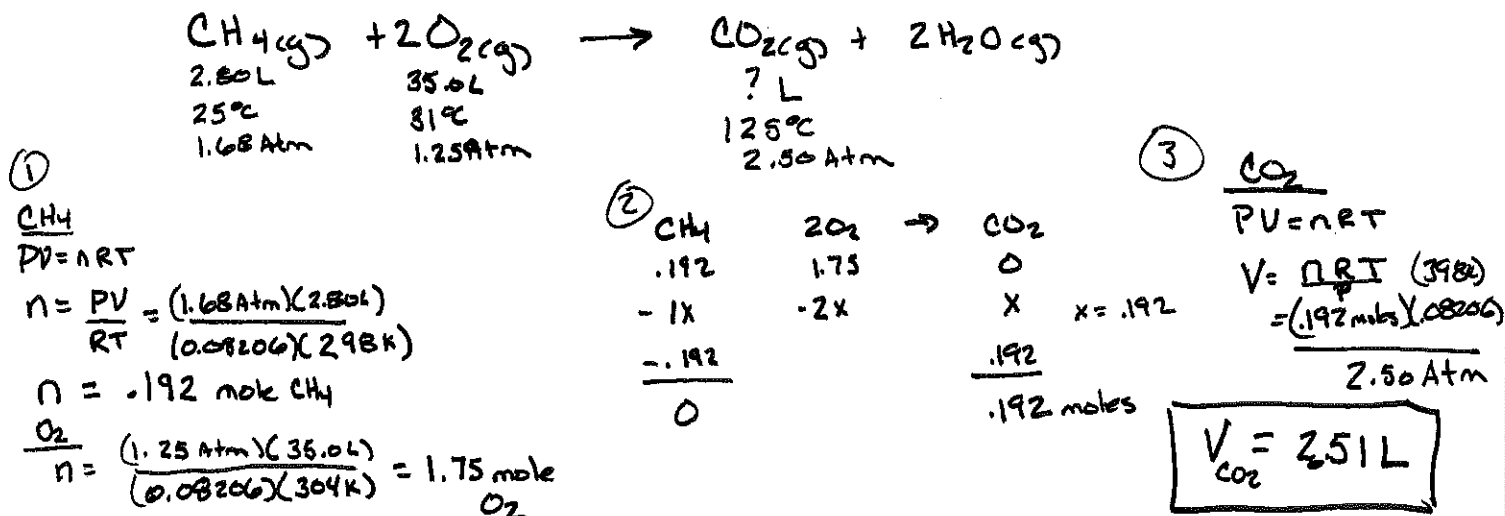 CH4(g) + 2O2(g) → CO2(g) + 2H2O(g)
2.80L 35.0L ? L
25°C 31°C 125°C
1.68 Atm 1.25Atm 2.50 Atm
①
CH4
PV=nRT
n = PV/RT = (1.68Atm)(2.80L)/(0.08206)(298K)
n = .192 mole CH4
O2
n = (1.25 Atm)(35.0L)/(0.08206)(304K) = 1.75 mole O2
②
CH4 2O2 → CO2
.192 1.75 0
-1x -2x x x = .192
-.192 .192
0 .192 moles
③
CO2
PV=nRT
V = nRT/P (398K)
=(.192 moles)(.08206)
2.50 Atm
VCO2 = 2.51 L